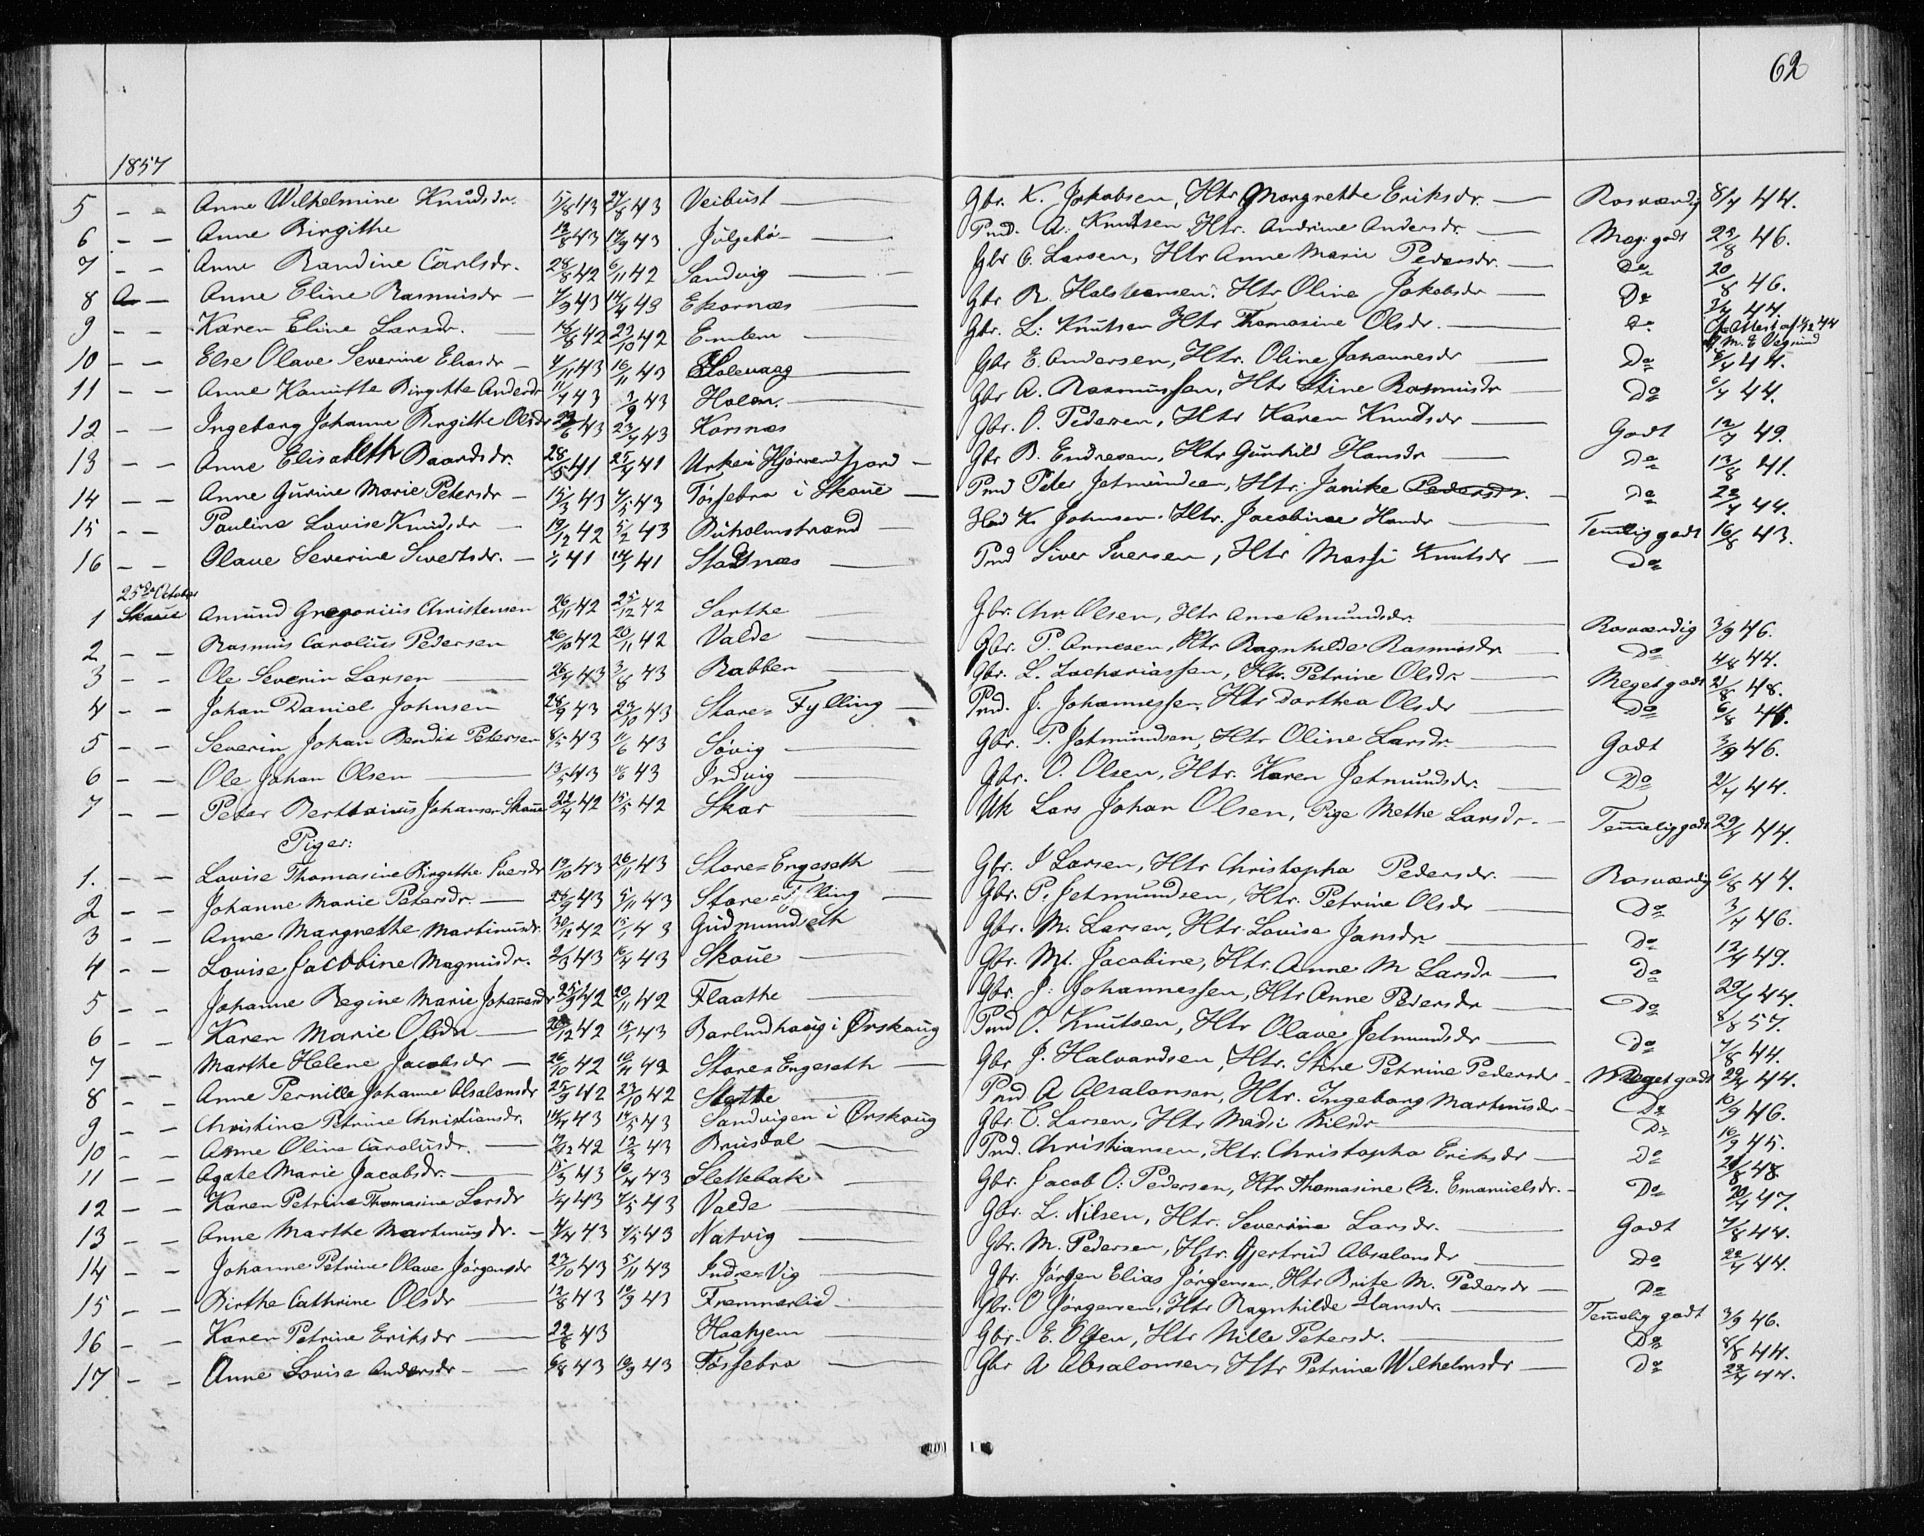 62
1857
5 - - Anne Wilhelmine Knudsdr. 5/8 43 24/8 43 Veibust Gbr. K. Jakobsen, Htr Margrethe Eriksdr. Rosværdig 8/7 44.
6 - - Anne Birgithe 12/8 43 17/9 43 Julsebö Pmd. A. Knutsen Htr. Andrine Andersdr. Meg: godt 25/8 46.
7 - - Anne Randine Carlsdr. 28/8 42 6/11 42 Sandvig Gbr C. Larsen, Htr Anne Marie Pedersdr. Do 20/8 46.
8 - Anne Eline Rasmusdr 7/3 43 17/4 43 Ekornæs Gbr R. Halsteensen. Htr Oline Jakobsdr Do 44.
9 - - Karen Eline Larsdr. 18/8 42 23/10 42 Emlem Gbr. L: Knutsen Htr Thomasine Olsdr. Do Attest af 44
10 - - Else Olave Severine Eliasdr 4/11 43 16/11 43 Holevaag Gbr E. Andersen, Htr. Oline Johannesdr Do 44.
11 - - Anne Kanutte Birgitte Andersdr 11/7 43 3/9 43 Holen. Gbr A. Rasmussen, Htr Stine Rasmusdr Do 6/7 44.
12 - - Ingeborg Johanne Birgithe Olsdr 43 23/7 43 Korsnæs Gbr. O. Pedersen, Htr Karen Knudsdr Godt 12/7 49.
13 - - Anne Elisabeth Baardsdr. 28/5 41 25/7 41 Urke i Hjörrendfjord Gbr B. Endresen, Htr Gunhild Hansdr Do 13/8 41.
14 - - Anne Gurine Marie Petersdr 15/3 43 7/5 43 Tössebro i Skoue Pmd Peter Jetmundsen, Htr: Janike Pedersdr. Do 23/7 44.
15 - - Pauline Lovise Knudsdr 19/12 42 5/2 43 Buholmstrand K. Johnsen. Htr. Jacobine Hansdr Temelig godt 16/8 43.
16 - - Olave Severine Sivertsdr. 1/1 41 41 Stadsnæs Pmd Siver Iversen, Htr Massi Knutsdr Do
25de October
1 Skoue Amund Gregorius Christensen 26/11 42 25/12 42 Sorthe Gbr. Chr. Olsen, Htr Anne Amundsdr. Rosværdig 3/9 46.
2 - - Rasmus Carolius Pedersen 26/10 42 20/11 42 Valde Gbr. P. Annesen, Htr Ragnhilde Rasmusdr Do 4/8 44.
3 - - Ole Severin Larsen 26/7 43 3/8 43 Rabben Gbr. L. Zachariassen, Htr. Petrine Olsdr. Meget godt 21/8 48.
4 - - Johan Daniel Johnsen 28/9 43 23/10 43 Store=Fylling Pmd. J. Johannessen, Htr Dorthea Olsdr Do 6/8
5 - - Severin Johan Bendix Petersen 8/5 43 11/6 43 Sövig Gbr. P. Jetmundsen, Htr Oline Larsdr. Godt 3/9 46.
6 - - Ole Johan Olsen 13/5 43 11/6 43 Indvig Gbr. O. Olsen, Htr. Karen Jetmundsdr. Do 21/7 44.
7 - - Peter Berthinius Johansen Skoue 22/4 42 15/5 42 Skar Uk Lars Johan Olsen, Pige Methe Larsdr. Temmelig godt 29/7 44.
Piger:
1. - - Lovise Thomasine Birgithe Iversdr 19/10 43 26/11 43 Store=Engeseth Gbr. I Larsen, Htr Christopha Pedersdr. Rosværdig 6/8 44.
2 - - Johanne Marie Petersdr. 43 5/11 43 Store=Fylling Gbr. P. Jetmundsen, Htr. Petrine Olsdr Do 3/7 46.
3 - - Anne Margrethe Martinusdr. 42 15/1 43 Gudmundseth Gbr. M. Larsen, Htr. Lovise Jansdr. Do 12/7 49.
4 - - Lovise Jacobine Magnusdr. 2/3 43 16/4 43 Skoue Gbr. Mt. Jacobine, Htr. Anne M Larsdr Do
5 - - Johanne Regine Marie Johannesdr 25/9 42 20/11 42 Flaathe Gbr. J. Johannessen, Htr Anne Pedersdr Do 29/7 44.
6 - - Karen Marie Olsdr 42 15/1 43 Barlindhaug i Ørskoug Pmd O. Knutsen, Htr Olave Jetmundsdr Do 8/8 57.
7 - - Marthe Helene Jacobsdr 26/10 42 42 Store=Engeseth Gbr J. Halvardsen, Htr. Stine Petrine Pedersdr Do 7/8 44.
8 - - Anne Pernille Johanne Absalonsdr 25/9 42 23/10 42 Slette Pmd A Absalonsen, Htr. Ingeborg Martinusdr Meget godt 29/7 44.
9 - - Christine Petrine Christiansdr. 14/4 43 14/5 43 Sandvigen i Ørskoug Gbr. C. Larsen, Htr Madsi Nilsdr Do 10/9 46.
10 - - Anne Oline Carolusdr. 17/12 42 12/3 43 Brusdal Pmd. Christiansen, Htr. Christopha Eriksdr Do 16/9 45.
11 - - Agate Marie Jacobsdr. 15/3 43 16/4 43 Slettebak Gbr. Jacob O. Pedersen, Htr. Thomasine M. Emanuelsdr. Do 48.
12 - - Karen Petrine Thomasine Larsdr 1/4 43 7/5 43 Valde Gbr. L. Nilsen, Htr. Severine Larsdr. Do 47.
13 - - Anne Marthe Martinusdr. 7/4 43 7/5 43 Natvig Gbr. M. Pedersen, Htr. Gjertrud Absalonsdr Godt 7/8 44.
14 - - Johanne Petrine Olave Jörgensdr 23/10 43 5/11 43 Indre=Vig Gbr. Jörgen Elias Jörgensen, Htr Brite M. Pedersdr Do 22/7 44.
15 - - Birthe Cathrine Olsdr 12/8 43 10/9 43 Fremmerlid Gbr. O Jörgensen, Htr Ragnhilde Hansdr. Do
16 - - Karen Petrine Eriksdr 22/8 43 Haahjem Gbr. E. Olsen, Htr Nille Petersdr. Temelig godt 3/9 46.
17 - - Anne Lovise Andersdr 6/8 43 10/9 43 Tössebro Gbr A Absalonsen, Htr Petrine Wilhelmsdr Do 8/8 44.
Do 22/7 44.